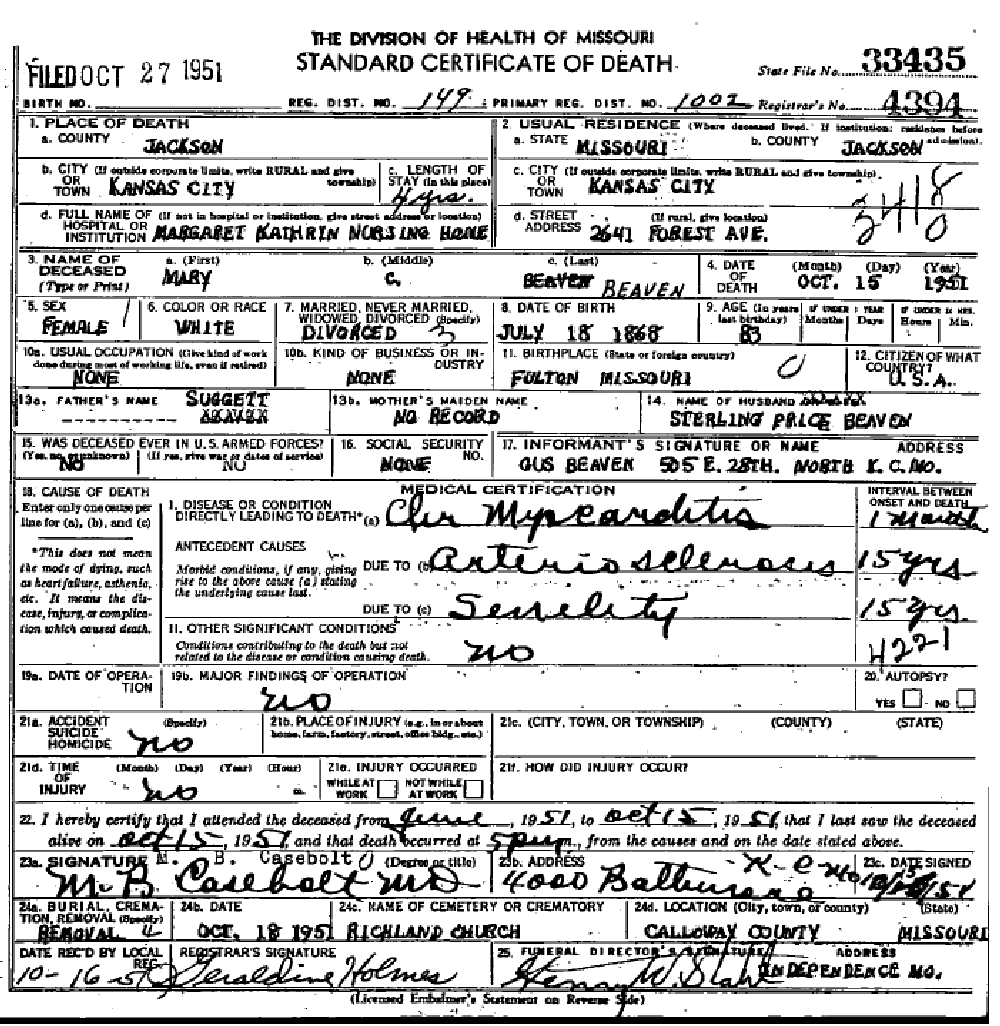 THE DIVISION OF HEALTH OF MISSOURI
STANDARD CERTIFICATE OF DEATH
FILED OCT 27 1951
State File No. 33435
BIRTH NO. REG. DIST. NO. 149 PRIMARY REG. DIST. NO. 1002 Registrar's No. 4394
1. PLACE OF DEATH
a. COUNTY JACKSON
2. USUAL RESIDENCE (Where deceased lived. If institution: residence before admission).
a. STATE MISSOURI b. COUNTY JACKSON
b. CITY OR TOWN (If outside corporate limits, write RURAL and give township) KANSAS CITY
c. LENGTH OF STAY (in this place) 4 yrs.
c. CITY OR TOWN (If outside corporate limits, write RURAL and give township). KANSAS CITY
d. FULL NAME OF HOSPITAL OR INSTITUTION (If not in hospital or institution, give street address or location) MARGARET KATHRIN NURSING HOME
d. STREET ADDRESS (If rural, give location) 2641 FOREST AVE.
3418
0
3. NAME OF DECEASED (Type or Print)
a. (First) MARY b. (Middle) C. c. (Last) BEAVEN BEAVEN
4. DATE OF DEATH (Month) (Day) (Year) OCT. 15 1951
5. SEX FEMALE 1
6. COLOR OR RACE WHITE
7. MARRIED, NEVER MARRIED, WIDOWED, DIVORCED (Specify) DIVORCED 3
8. DATE OF BIRTH JULY 18 1868
9. AGE (In years last birthday) 83 IF UNDER 1 YEAR Months Days IF UNDER 24 HRS. Hours Min.
10a. USUAL OCCUPATION (Give kind of work done during most of working life, even if retired) NONE
10b. KIND OF BUSINESS OR INDUSTRY NONE
11. BIRTHPLACE (State or foreign country) FULTON MISSOURI 0
12. CITIZEN OF WHAT COUNTRY? U.S.A.
13a. FATHER'S NAME SUGGETT
13b. MOTHER'S MAIDEN NAME NO RECORD
14. NAME OF HUSBAND STERLING PRICE BEAVEN
15. WAS DECEASED EVER IN U.S. ARMED FORCES? (Yes, no, or unknown) (If yes, give war or dates of service) NO NO
16. SOCIAL SECURITY NO. NONE
17. INFORMANT'S SIGNATURE OR NAME ADDRESS
GUS BEAVEN 505 E. 28TH. NORTH K.C.MO.
18. CAUSE OF DEATH
Enter only one cause per line for (a), (b), and (c)
*This does not mean the mode of dying, such as heart failure, asthenia, etc. It means the disease, injury, or complication which caused death.
MEDICAL CERTIFICATION
INTERVAL BETWEEN ONSET AND DEATH
1. DISEASE OR CONDITION DIRECTLY LEADING TO DEATH* (a) Chr Myocarditis 1 Month
ANTECEDENT CAUSES
Morbid conditions, if any, giving rise to the above cause (a) stating the underlying cause last.
DUE TO (b) Arterio sclerosis 15 yrs
DUE TO (c) Senility 15 yrs.
11. OTHER SIGNIFICANT CONDITIONS
Conditions contributing to the death but not related to the disease or condition causing death. no
422-1
19a. DATE OF OPERATION
19b. MAJOR FINDINGS OF OPERATION no
20. AUTOPSY? YES NO
21a. ACCIDENT SUICIDE HOMICIDE (Specify) no
21b. PLACE OF INJURY (e.g., in or about home, farm, factory, street, office bldg., etc.)
21c. (CITY, TOWN, OR TOWNSHIP) (COUNTY) (STATE)
21d. TIME OF INJURY (Month) (Day) (Year) (Hour) no m.
21e. INJURY OCCURRED WHILE AT WORK NOT WHILE AT WORK
21f. HOW DID INJURY OCCUR?
22. I hereby certify that I attended the deceased from June, 1951, to Oct 15, 1951, that I last saw the deceased
alive on Oct 15, 1951, and that death occurred at 5 p.m., from the causes and on the date stated above.
23a. SIGNATURE M. B. Casebolt (Degree or title)
M. B. Casebolt MD
23b. ADDRESS 4000 Baltimore K-C-Mo
23c. DATE SIGNED
24a. BURIAL, CREMATION, REMOVAL (Specify) REMOVAL 4
24b. DATE OCT. 18 1951
24c. NAME OF CEMETERY OR CREMATORY RICHLAND CHURCH
24d. LOCATION (City, town, or county) (State) CALLOWAY COUNTY MISSOURI
DATE REC'D BY LOCAL REG. 10-16-51
REGISTRAR'S SIGNATURE Geraldine Holmes
25. FUNERAL DIRECTOR'S SIGNATURE ADDRESS
Henry W. Stahl INDEPENDENCE MO.
(Licensed Embalmer's Statement on Reverse Side)